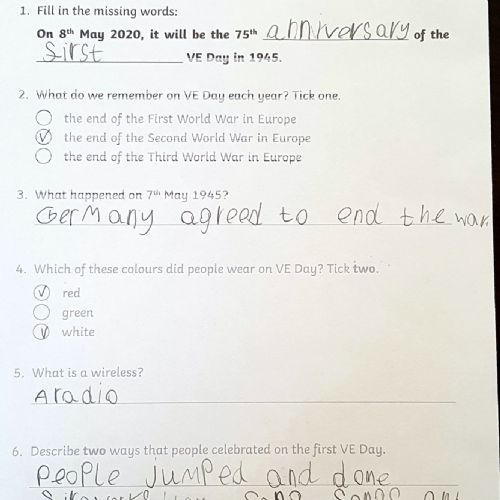 1. Fill in the missing words:
On 8th May 2020, it will be the 75th anniversary of the
first VE Day in 1945.
2. What do we remember on VE Day each year? Tick one.
the end of the First World War in Europe
the end of the Second World War in Europe
the end of the Third World War in Europe
3. What happened on 7th May 1945?
Germany agreed to end the war
4. Which of these colours did people wear on VE Day? Tick two.
red
green
white
5. What is a wireless?
A radio
6. Describe two ways that people celebrated on the first VE Day.
People jumped and done